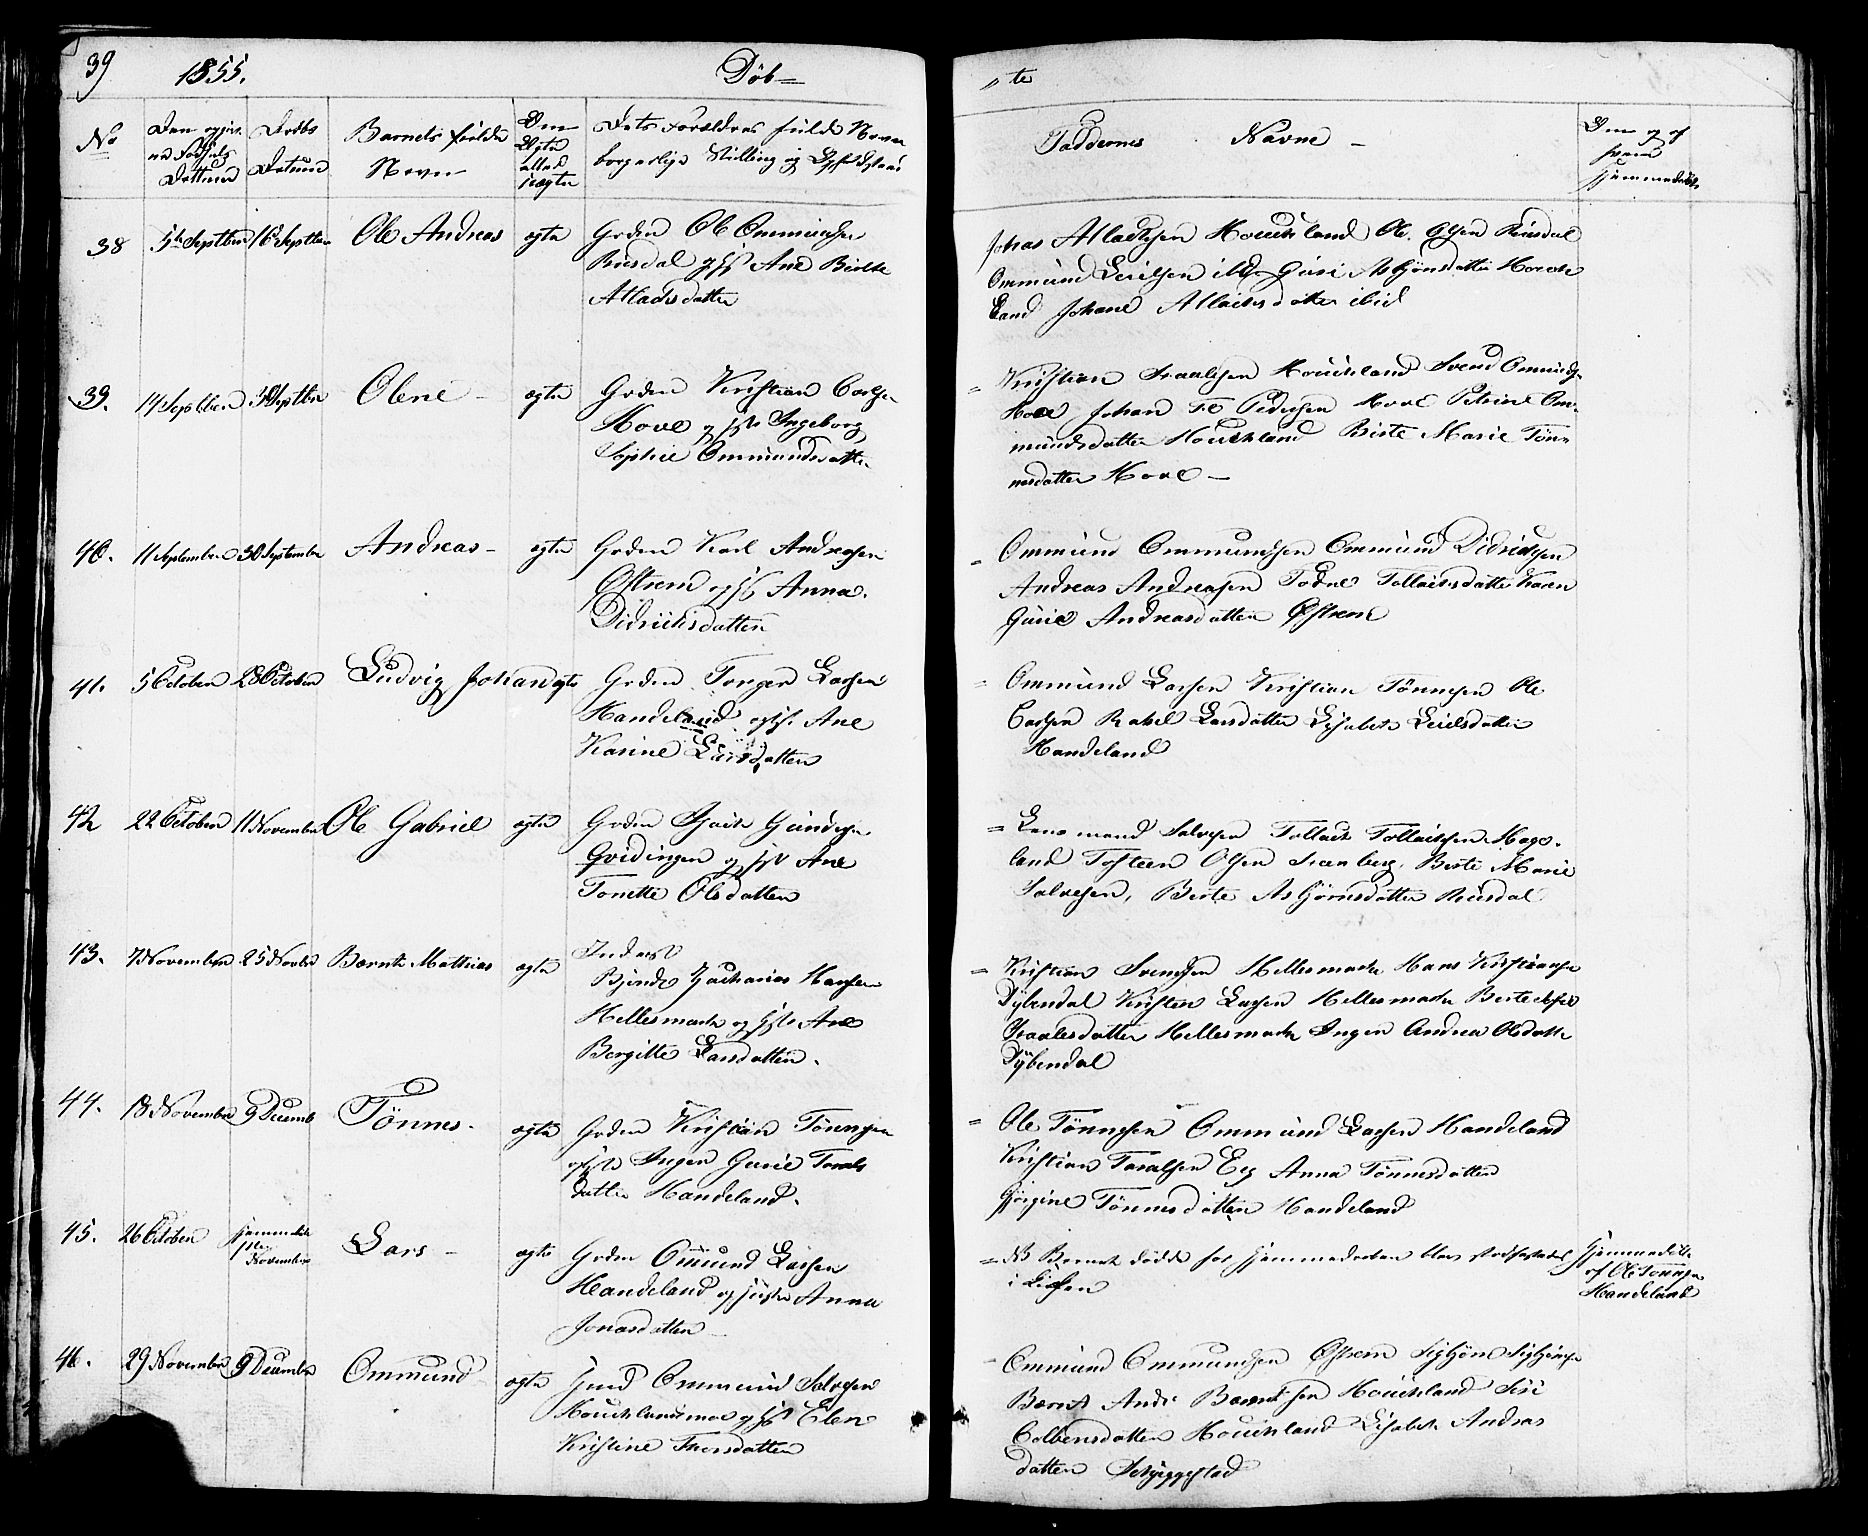 39 1855. Döb= „te
No
Den opgivne Födsels Dattum
Daabs Datum
Barnets fulde Navn
Om Ægte eller uægte
Dets Forældres fulde Navn borgerlige Stilling og Opholdssted
Faddernes Navne –
Om og af hvem hjemmedøbt
38 5te Septbr 16 Septbr Ole Andreas ægte
Grdm Ole Ommundsen
Risdal og H Ane Birthe
Atlacksdatter
Johas Atlacksen Houckland Ole Olsen Risdal
Ommund Leielsen ibd Guri Asbjörnsdatter Houck
land Johane Atlacksdatter ibid
39. 14 Septbr 30 Septbr Olene – ægte
Grdm Kristian Carlsen
Hove og Hst Ingeborg
Sophie Ommundsdatter
= Kristian Traalsen Houckland Svend Ommunds
Hove Johan Pedersen Hove Petrine Om-
mundsdatter Houckland Birte Marie Tön-
nesdatter Hove –
40. 11 September 30 September Andreas – ægte
Grdm Karl Andreasen
Østrem og H Anna
Didricksdatter
= Ommund Ommundsen Ommund Didricksen
Andreas Andreasen Todne Tollacksdatter Karen
Gurie Andreasdatter Østrem
41. 5 October 28 October Ludvig Johan ægte
Grdm Torger Larsen
Handeland og H. Ane
Karine Larsdatter
= Ommund Larsen Kristian Tönnesen Ole
Carlsen Rakel Larsdatter Lisabeth Leielsdatter
Handeland
42 22 October 11 November Ole Gabriel ægte
Grdm Gundersen
Qvidingen og Hst Ane
Tonette Olsdatter
= mand Salvesen Tollack Tollacksen Hage-
land Tosteen Olsen Birte Marie
Salvesen, Birte Asbjörnsdatter Risdal
43. 7 November 25 Novbr Bærnt Mathias ægte
Inderst
Zacharias Hansen
Hellesmark og Hst Ane
Bergitte Larsdatter.
= Kristian Svendsen Hellesmark Hans Kristiansen
Dybendal Kirsten Larsen Hellesmark Birte
Hellesmark Inger Andrea Olsdatter
Dybendal
44. 18 November 9 Decemb Tönnes – ægte
Grdm Kristian Tönnesen
og Hst Inger Gurie Taral-
datter Handeland.
= Ole Tönnesen Ommund Larsen Handeland
Kristian Taralsen Eeg Anna Tönnesdatter
Gjörgine Tönnesdatter Handeland
45. 26 October hjemmedöbt November Lars – ægte
Grdm Omund Larsen
Handeland og hustr Anna
Jonasdatter
= NB Barnet döde for hjemmedaaben blev stadfæstet
i Kirken
hjemmedöbt
af Ole Tönnesen
Handeland
46. 29 November 9 Decembr Ommund – ægte
Ommund Salvesen
og Hst Elen
Kristine Thorsdatter
– Ommund Ommundsen Østrem Sigbjörn Sigbjörnsen
Bærnt Andr Bærntsen Houckland Siri
Colbensdatter Houckland Lisabeth Andras
datter Schjeggestad